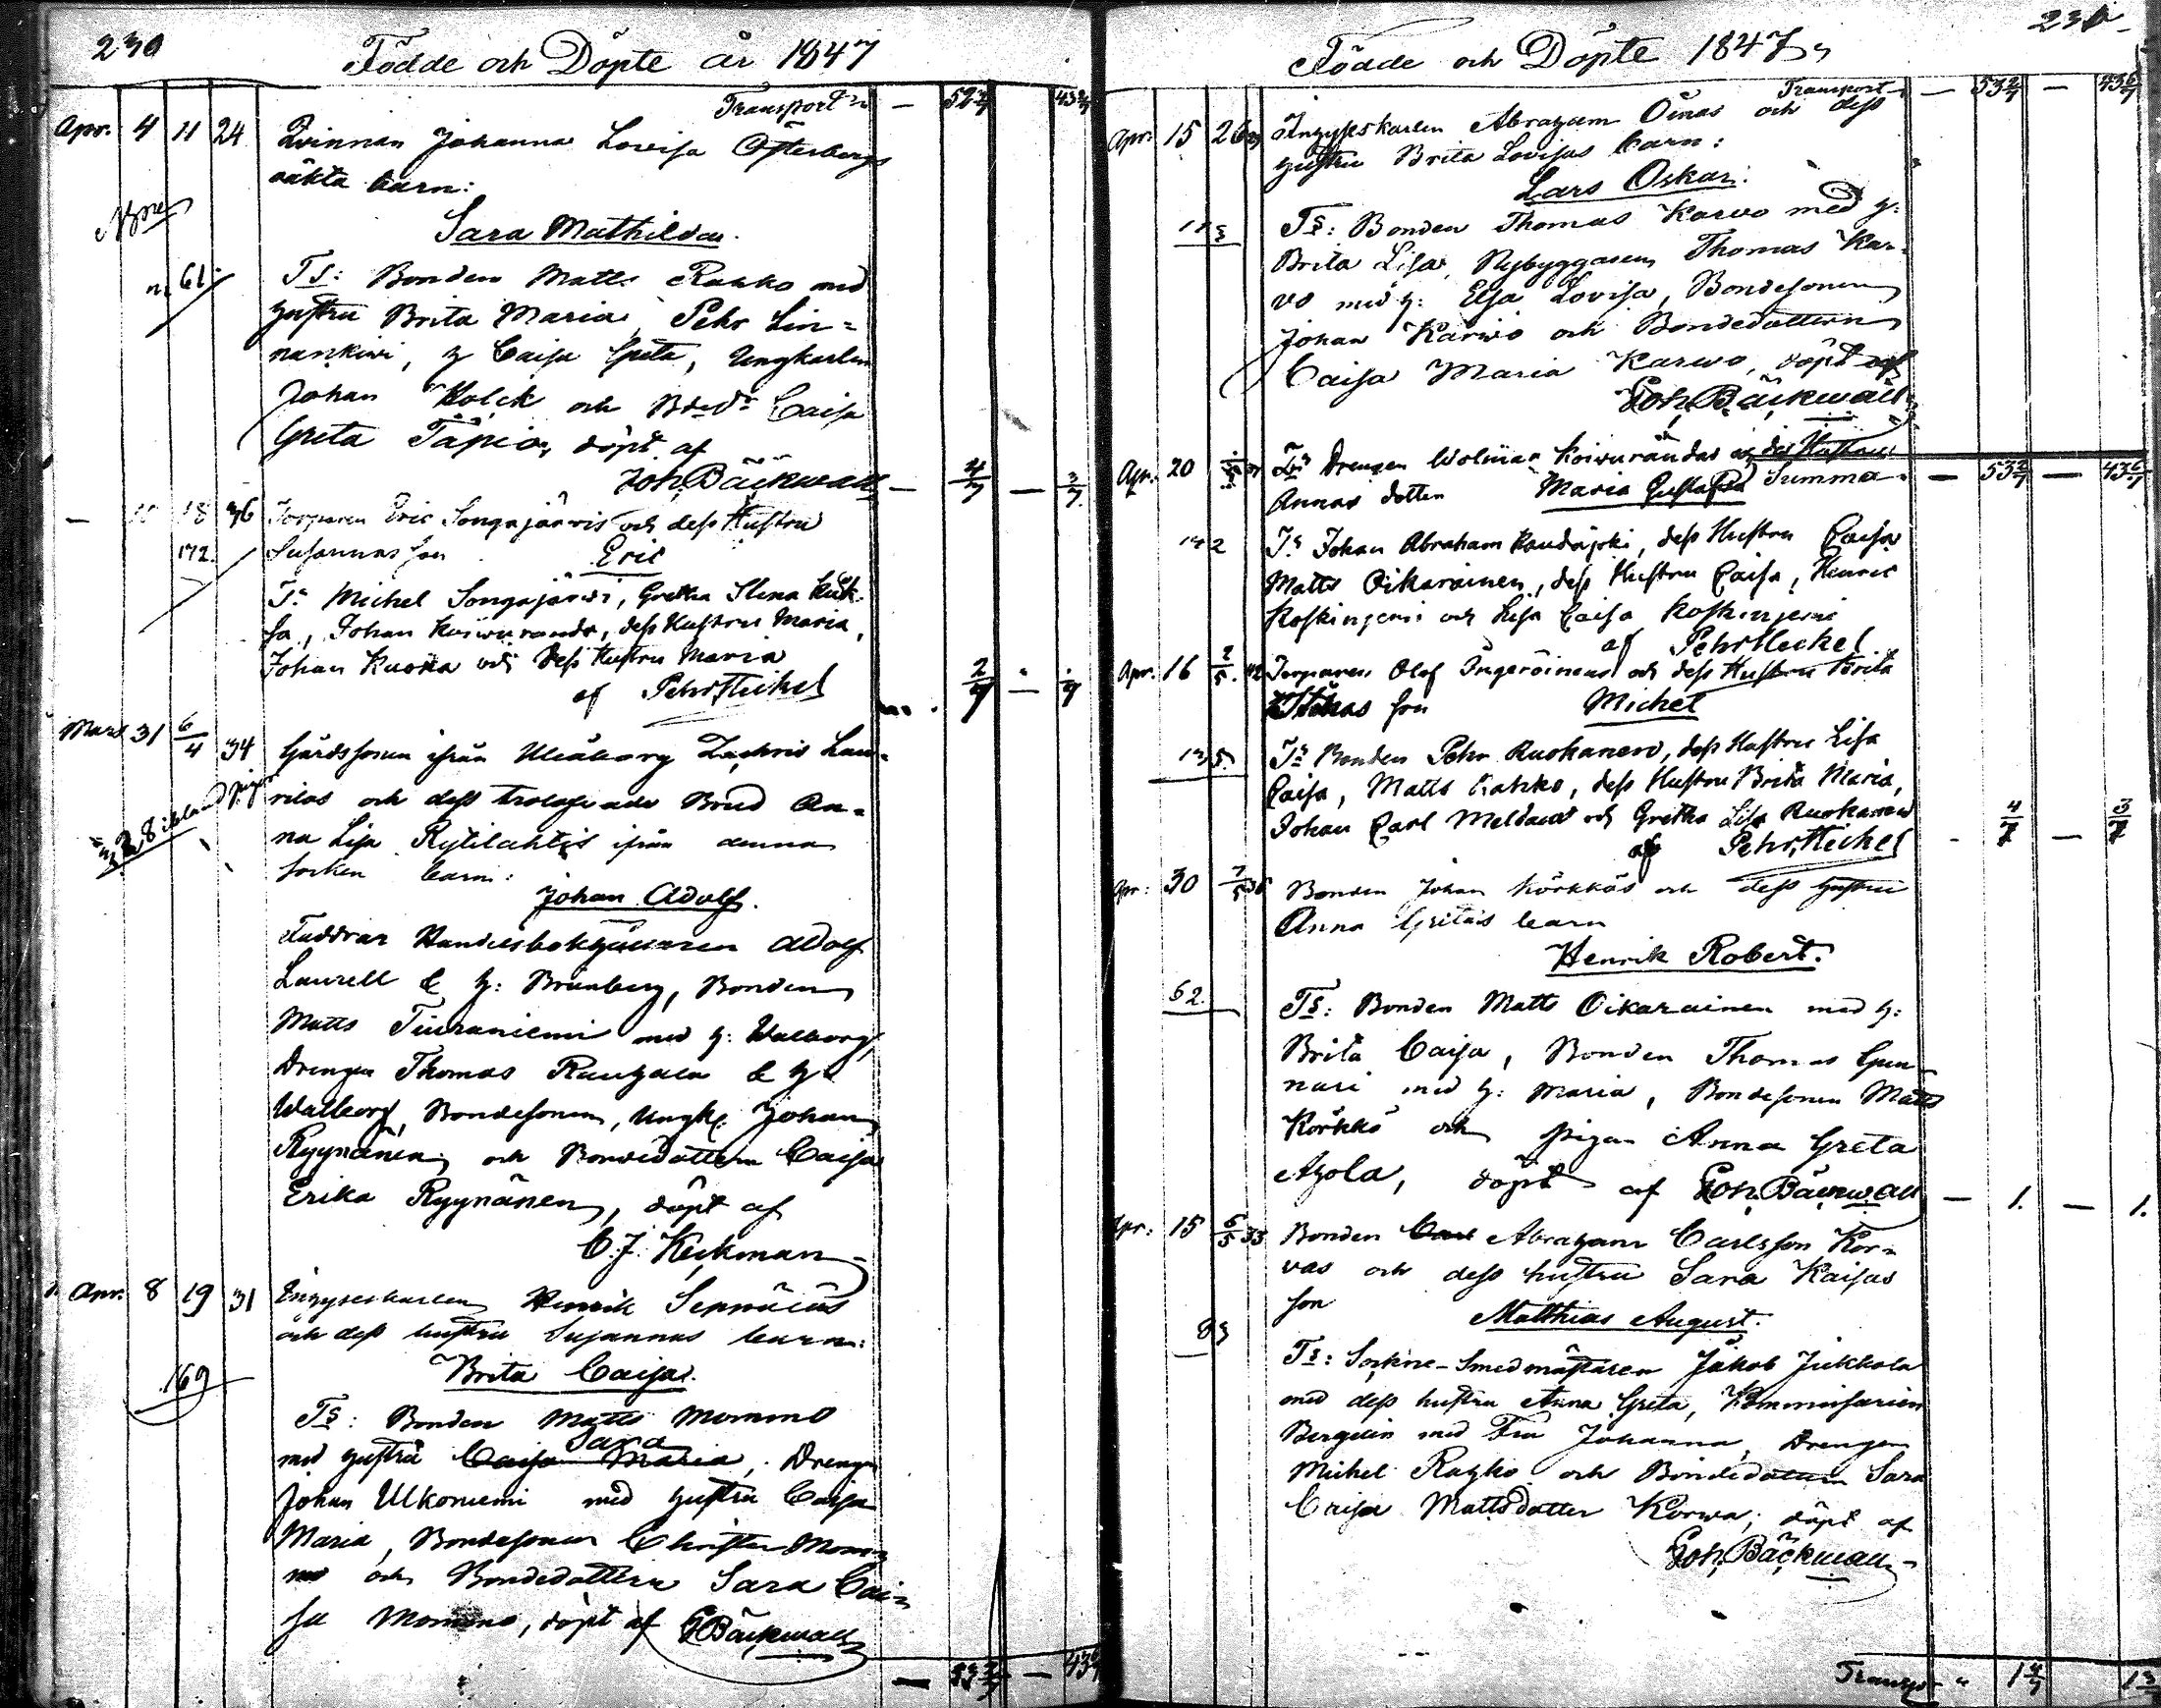 230
Födde och Döpte år 1847
Transport
Apr. 4 11 24 Qvinnan Johanna Lovisa Österbergs
oäkta barn:
Sara Mathilda.
n. 61. Ts: Bonden Matts Rahko med
hustru Brita Maria, Pehr Lin=
nankivi, h Caisa Greta, Ungkarlen
Johan Kolck och Caisa
Greta Tapio, döpt af
Joh. Bäckwall — 4/7 — 3/7
— 10 18 36 Torparen Eric Songajärvis och dess Hustru
172. Susannas son Eric
Ts Michel Songajärvi, Gretha Stina
Johan Koiwuranda, dess Hustru Maria,
Johan Kuoka och dess Hustru Maria
af Pehr Heickel 2/7
Mars 31 6/4 34 Gårdssonen ifrån Uleåborg Zachris Lau=
rilas och dess trolofvade Brud An=
na Lisa Rytilahtis ifrån denna
socken barn:
Johan Adolf.
Faddrar Handelsbokhållaren Adolf
Laurell & h: Brunberg, Bonden
Matts Tiuraniemi med h: Walborg,
Drengen Thomas Rautzala & h
Walborg, Bondesonen, Ungk. Johan
Ryynänen och Bondedottern Caisa
Erika Ryynänen, döpt af
C. J. Keckman
Apr. 8 19 31 Inhyseskarlen Henrik Seppäläs
och dess hustru Susannas barn:
169 Brita Caisa.
Ts: Bonden Matts Mommo
Sara
med hustru Caisa Maria, Drengen
Johan Ulkoniemi med hustru Caisa
Maria, Bondesonen Christer Mom=
mo och Bondedottern Sara Cai=
sa Mommo, döpt af Bäckwall
— 53 2/7 — 43 6/7
230
Födde och Döpte 1847
Transport — 53 2/7 — 43 6/7
Apr. 15 26 Inhyseskarlen Abraham Oinas och dess
hustru Brita Lovisas barn:
Lars Oskar.
Ts: Bonden Thomas Karvo med h:
Brita Lisa, Nybyggaren Thomas Kar=
vo med h: Elsa Lovisa, Bondesonen
Johan Karvo och Bondedottern
Caisa Maria Karvo, döpt af
Joh. Bäckwall
Apr. 20 Drengen Koiwurandas och dess Hustru
Annas dotter Maria Gustafva Summa — 53 2/7 — 43 6/7
142 Ts Johan Abraham, dess Hustru Caisa
Matts Oikarainen, dess Hustru Caisa, Henric
Koskinjemi och Lisa Caisa Koskinjemi
af Pehr Heickel
Apr. 16 2/5. 42 Torparen Olof och dess Hustru Brita
son Michel
135. Ts Bonden Pehr Ruokanen, dess Hustru Lisa
Caisa, Matts Rahko, dess Hustru Brita Maria,
Johan Carl och Gretha Lisa Ruokanen
af Pehr Heickel — 4/7 — 3/7
Apr: 30 7/5 36 Bonden Johan Körkkös och dess hustru
Anna Gretas barn
Henrik Robert.
62. Ts: Bonden Matts Oikarainen med h:
Brita Caisa, Bonden Thomas Gun=
nari med h: Maria, Bondesonen Matts
Körkkö och pigan Anna Greta
Ahola, döpt af Joh. Bäckwall — 1. — 1.
Apr: 15 6/5 33 Bonden Carl Abraham Carlsson Kor=
vas och dess hustru Sara Kaisas
son Matthias August.
Ts: Sockne-Smedmästaren Jakob Jukkola
med dess hustru Anna Greta, Kommissarien
Bergelin med Fru Johanna, Drengen
Michel Rahko och Bondedottern Sara
Caisa Mattsdotter Korva, döpt af
Joh. Bäckwall
Transp. 1 4/7